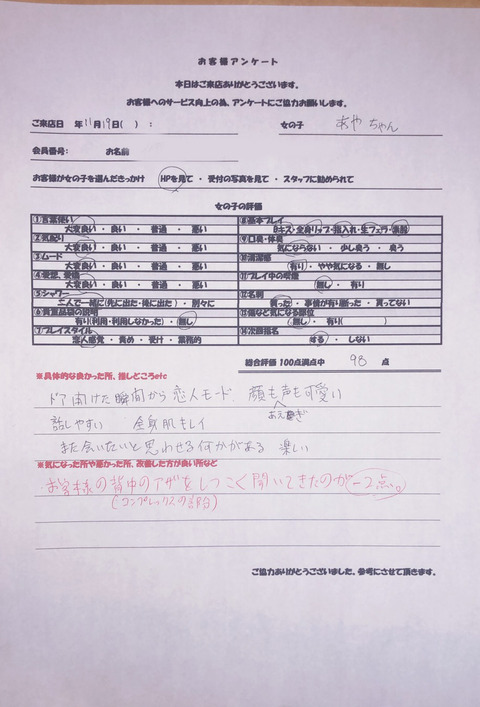 お客様アンケート
本日はご来店ありがとうございます。
お客様へのサービス向上の為、アンケートにご協力お願いします。
ご来店日 年11月19日( ) : 女の子 あやちゃん
会員番号: お名前
お客様が女の子を選んだきっかけ HPを見て ・ 受付の写真を見て ・ スタッフに勧められて
女の子の評価
①言葉使い
大変良い ・ 良い ・ 普通 ・ 悪い
②気配り
大変良い ・ 良い ・ 普通 ・ 悪い
③ムード
大変良い ・ 良い ・ 普通 ・ 悪い
④愛想、愛嬌
大変良い ・ 良い ・ 普通 ・ 悪い
⑤シャワー
二人で一緒に(先に出た・後に出た) ・ 別々に
⑥貴重品袋の説明
有り(利用・利用しなかった) ・ 無し
⑦プレイスタイル
恋人感覚 ・ 責め ・ 受け ・ 業務的
⑧基本プレイ
Dキス・全身リップ・指入れ・生フェラ・素股
⑨口臭・体臭
気にならない ・ 少し臭う ・ 臭う
⑩清潔感
有り ・ やや気になる ・ 無し
⑪プレイ中の喫煙
無し ・ 有り
⑫名刺
貰った ・ 事情が有り断った ・ 貰ってない
⑬傷など気になる部位
無し ・ 有り( )
⑭次回指名
する ・ しない
総合評価 100点満点中 98 点
※具体的な良かった所、推しどころetc
ドア開けた瞬間から恋人モード、顔も声も可愛い
あえぎ
話しやすい 全身肌もキレイ
また会いたいと思わせる何かがある 楽しい
※気になった所や悪かった所、改善した方が良い所など
お客様の背中のアザをしつこく聞いてきたのが-2点。
(コンプレックスの部分)
ご協力ありがとうございました、参考にさせて頂きます。